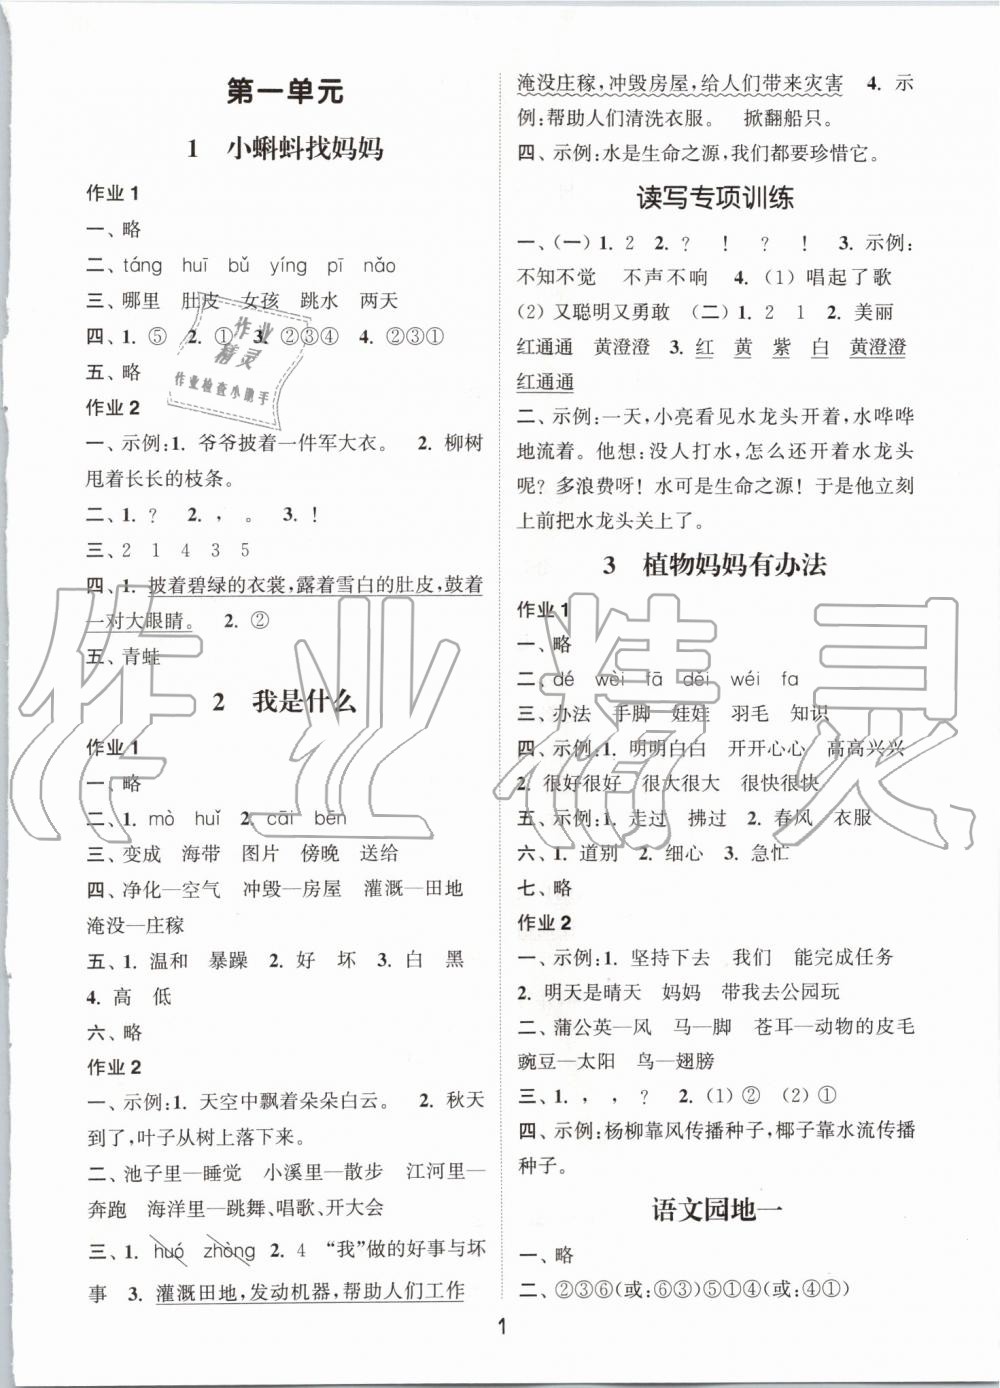 第一单元
1 小蝌蚪找妈妈
作业1
一、略
二、táng huī bǔ yíng pī nǎo
三、哪里 肚皮 女孩 跳水 两天
四、1. ⑤ 2. ① 3. ②③④ 4. ②③①
五、略
作业2
一、示例:1. 爷爷披着一件军大衣。 2. 柳树
甩着长长的枝条。
二、1. ? 2. , 。 3. !
三、2 1 4 3 5
四、1. 披着碧绿的衣裳,露着雪白的肚皮,鼓着
一对大眼睛。 2. ②
五、青蛙
2 我是什么
作业1
一、略
二、1. mò huǐ 2. cāi bēn
三、变成 海带 图片 傍晚 送给
四、净化—空气 冲毁—房屋 灌溉—田地
淹没—庄稼
五、1. 温和 暴躁 2. 好 坏 3. 白 黑
4. 高 低
六、略
作业2
一、示例:1. 天空中飘着朵朵白云。 2. 秋天
到了,叶子从树上落下来。
二、池子里—睡觉 小溪里—散步 江河里—
奔跑 海洋里—跳舞、唱歌、开大会
三、1. huó zhòng 2. 4 “我”做的好事与坏
事 3. 灌溉田地,发动机器,帮助人们工作
淹没庄稼,冲毁房屋,给人们带来灾害 4. 示
例:帮助人们清洗衣服。 掀翻船只。
四、示例:水是生命之源,我们都要珍惜它。
读写专项训练
一、(一)1. 2 2. ? ! ? ! 3. 示例:
不知不觉 不声不响 4. (1)唱起了歌
(2)又聪明又勇敢 (二)1. 2 1 2. 美丽
红通通 黄澄澄 3. 红 黄 紫 白 黄澄澄
红通通
二、示例:一天,小亮看见水龙头开着,水哗哗
地流着。他想:没人打水,怎么还开着水龙头
呢?多浪费呀!水可是生命之源!于是他立刻
上前把水龙头关上了。
3 植物妈妈有办法
作业1
一、略
二、dé wèi fā děi wéi fa
三、办法 手脚 娃娃 羽毛 知识
四、示例:1. 明明白白 开开心心 高高兴兴
2. 很好很好 很大很大 很快很快
五、示例:1. 走过 拂过 2. 春风 衣服
六、1. 道别 2. 细心 3. 急忙
七、略
作业2
一、示例:1. 坚持下去 我们 能完成任务
2. 明天是晴天 妈妈 带我去公园玩
二、蒲公英—风 马—脚 苍耳—动物的皮毛
豌豆—太阳 鸟—翅膀
三、1. , , ? 2. (1)② (2)①
四、示例:杨柳靠风传播种子,椰子靠水流传播
种子。
语文园地一
一、略
二、②③⑥(或:⑥③)⑤①④(或:⑤④①)
1
作业精灵
作业
精灵
作业检查小助手